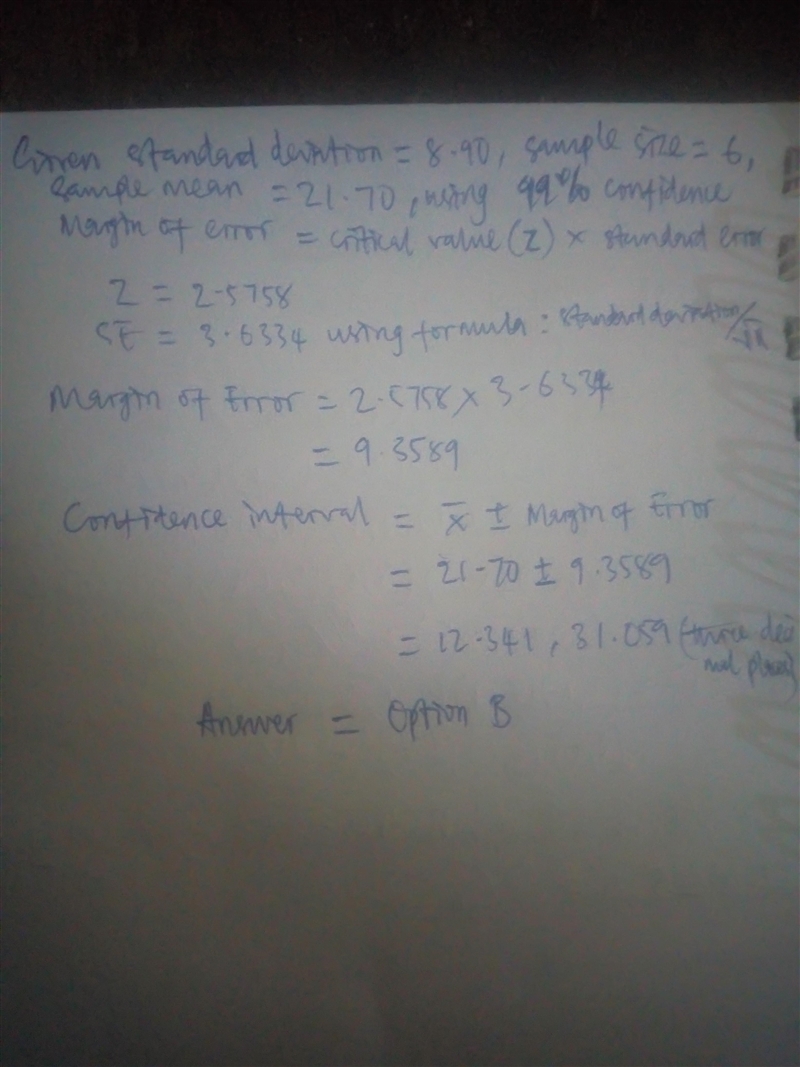 Given standard deviation = 8.90, sample size = 6,
sample mean = 21.70, using 99% confidence
Margin of error = critical value (Z) × standard error
Z = 2.5758
SE = 3.6334 using formula: standard deviation/√n
Margin of Error = 2.5758 × 3.6334
= 9.3589
Confidence interval = x̄ ± Margin of Error
= 21.70 ± 9.3589
= 12.341, 31.059 (three deci
mal places)
Answer = Option B